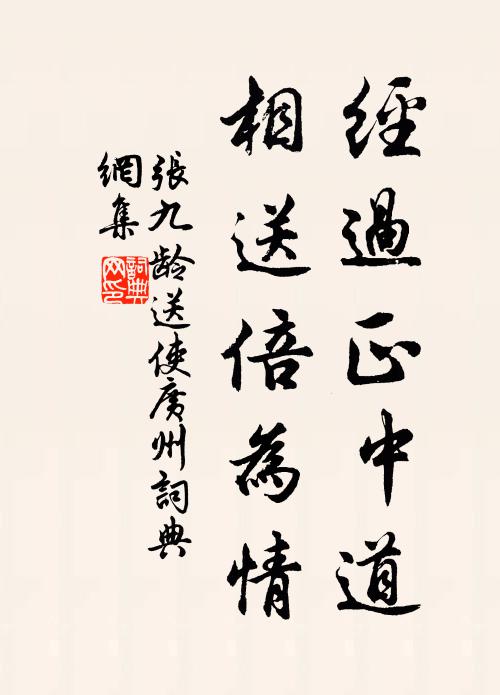 經過正中道
相送倍為情
張九龄送使廣州詞典
網集
詞典
网印